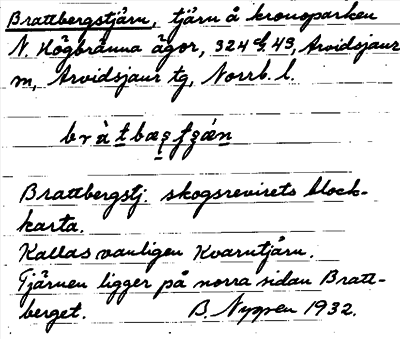 Brattbergstjärn, tjärn å kronoparken
N. Högbränna ägor, 324 & 43, Arvidsjaur
m, Arvidsjaur tg, Norrb. l.
bràtbæ
Brattbergstj. skogsrevirets block-
karta.
Kallas vanligen Kvarntjärn.
Tjärnen ligger på norra sidan Bratt-
berget. B. Nygren 1932.